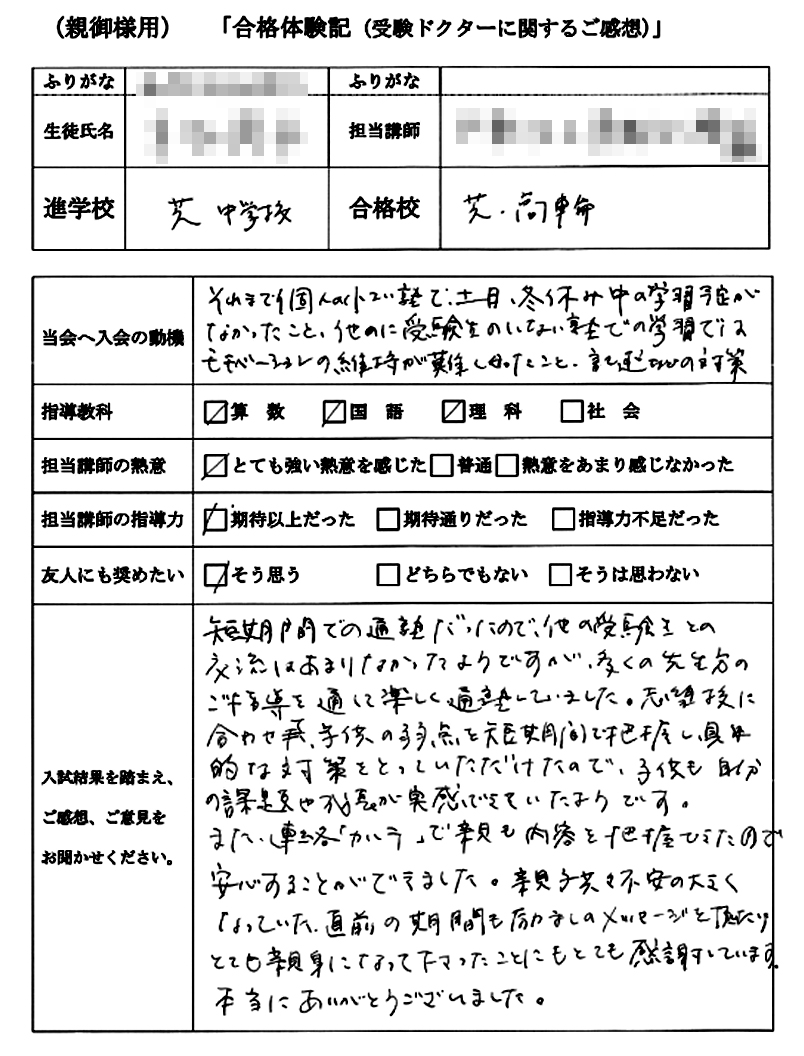 （親御様用）　「合格体験記（受験ドクターに関するご感想）」
ふりがな　ふりがな
生徒氏名　担当講師
進学校　芝 中学校　合格校　芝・高輪
当会へ入会の動機
それまで個人の塾で、土日、冬休み中の学習予定が
なかったこと、他のに受験生のいない塾での学習では
モチベーションの維持が難しかったこと、記述などの対策
指導教科　☑算　数　☑国　語　☑理　科　□社　会
担当講師の熱意　☑とても強い熱意を感じた□普通□熱意をあまり感じなかった
担当講師の指導力　☑期待以上だった　□期待通りだった　□指導力不足だった
友人にも奨めたい　☑そう思う　□どちらでもない　□そうは思わない
入試結果を踏まえ、
ご感想、ご意見を
お聞かせください。
短期間での通塾だったので、他の受験生との
交流はあまりなかったようですが、多くの先生方の
ご指導を通して楽しく通塾していました。志望校に
合わせ、子供の弱点を短期間で把握し具体
的な対策をとっていただけたので、子供も自分
の課題や成長が実感できていたようです。
また、連絡「カルテ」で親も内容を把握できたので
安心することができました。親子共々不安の大きく
なっていた直前の期間も励ましのメッセージを頂たり
とても親身になって下さったことにもとても感謝しています。
本当にありがとうございました。